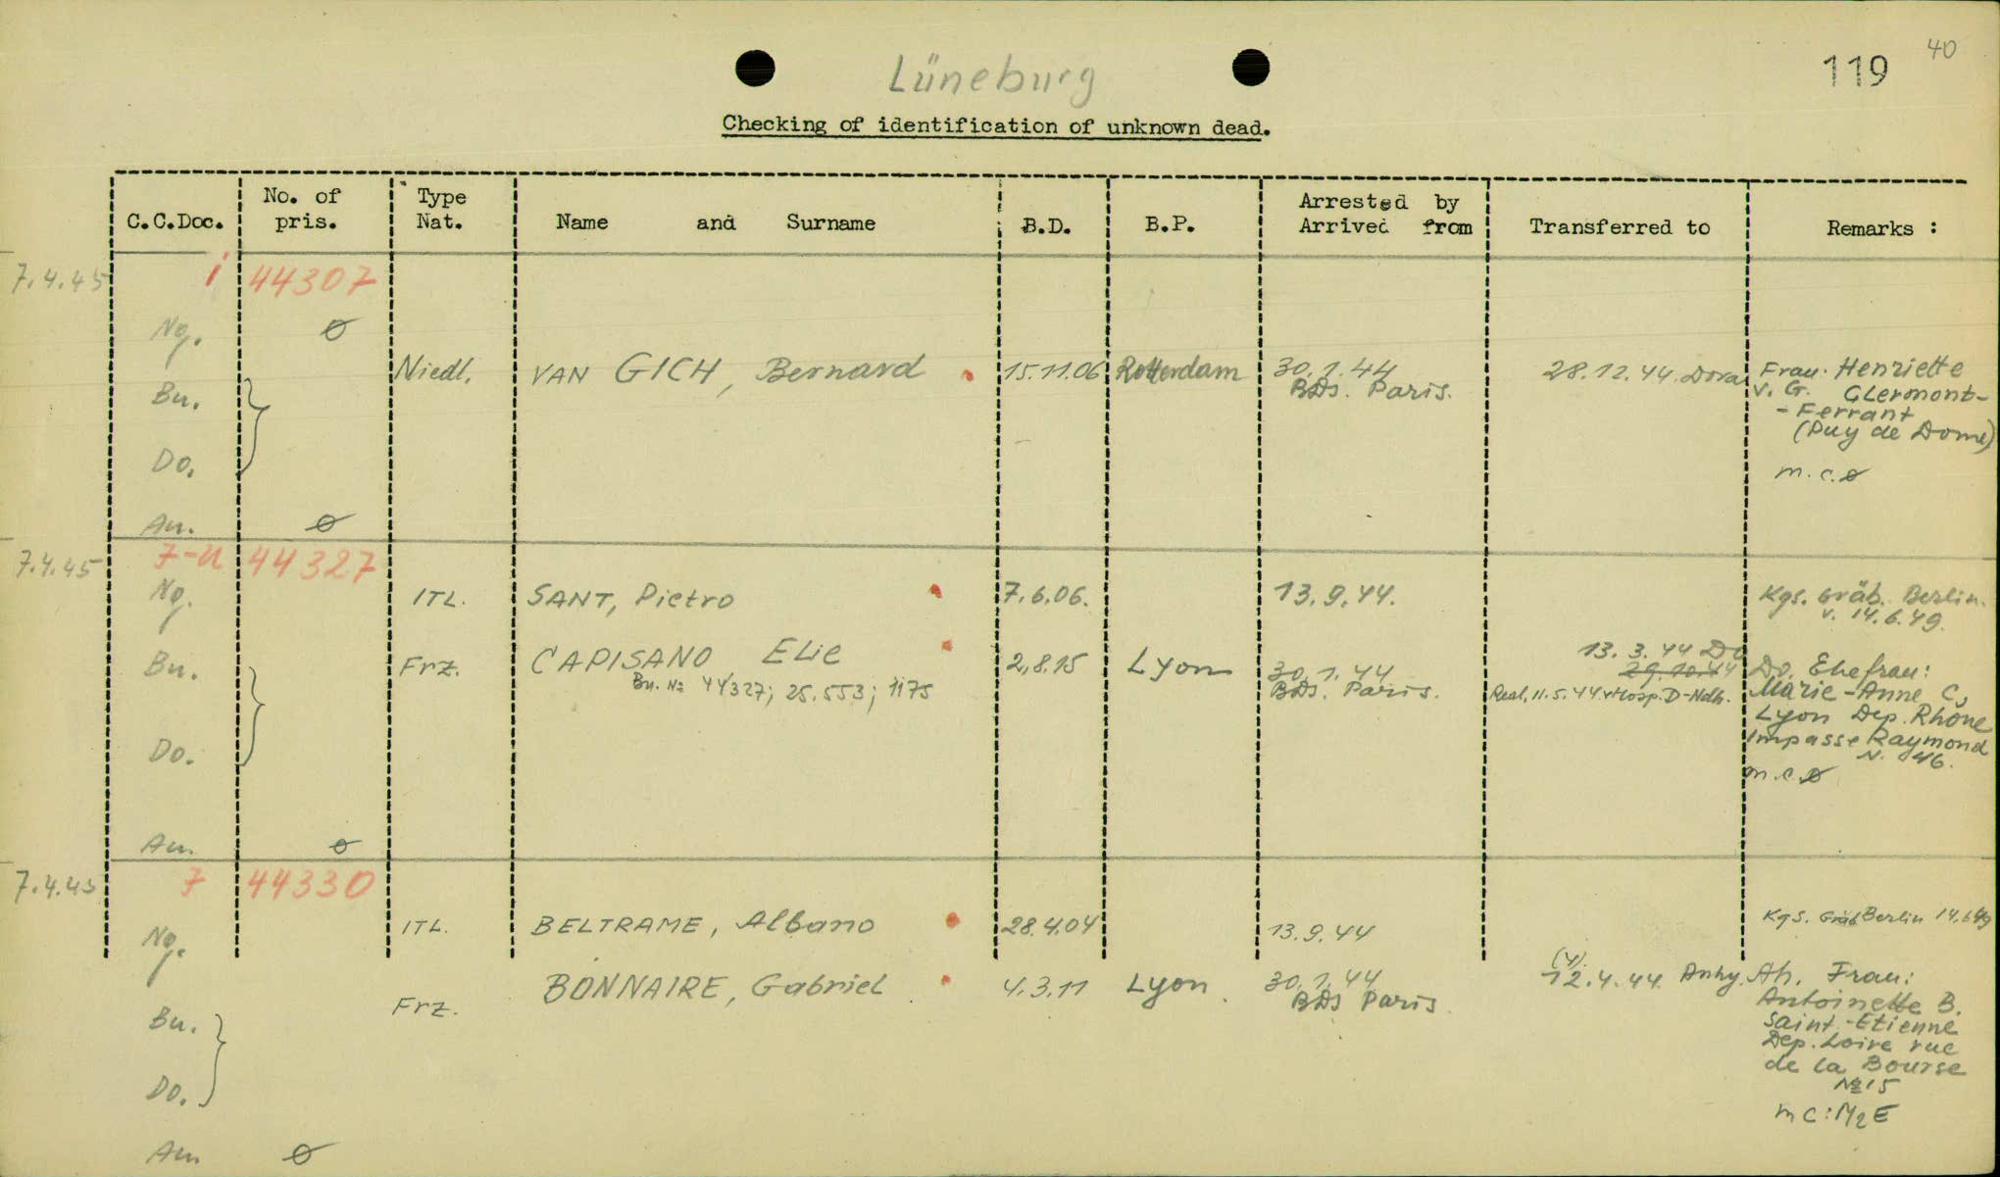 Lüneburg
119
40
Checking of identification of unknown dead.
C.C.Doc. No. of pris. Type Nat. Name and Surname B.D. B.P. Arrested by Arrived from Transferred to Remarks :
7.4.45 i 44307
Ng. ø
Niedl. VAN GICH, Bernard 15.11.06 Rotterdam 30.1.44 28.12.44 Dora Frau: Henriette
BDS. Paris. v. G. Clermont-
Bu. -Ferrant
(Puy de Dome)
Do.
m.c.ø
Au. ø
7.4.45 7-u 44327
Ng. ITL. SANT, Pietro 7.6.06. 13.9.44. Kgs. Gräb. Berlin.
v. 14.6.49.
Bu. Frz. CAPISANO Elie 2.8.15 Lyon 30.1.44 13.3.44 Do
29.10.44 Do. Ehefrau:
Bu. № 44327; 25.553; 1175 BDS. Paris. 11.5.44 v Hosp. D-Ndh. Marie-Anne C,
Lyon Dep. Rhone
Do. Impasse Raymond
N. 46.
m.c.ø
Au. ø
7.4.45 7 44330
Ng. ITL. BELTRAME, Albano 28.4.04 13.9.44 Kgs. Gräb Berlin 14.6.49
Frz. BONNAIRE, Gabriel 4.3.11 Lyon 30.1.44 (4) 12.4.44 Ah. Frau:
BDS Paris Antoinette B.
Bu. Saint-Etienne
Dep. Loire rue
de la Bourse
Do. №15
m c: M2E
Au ø